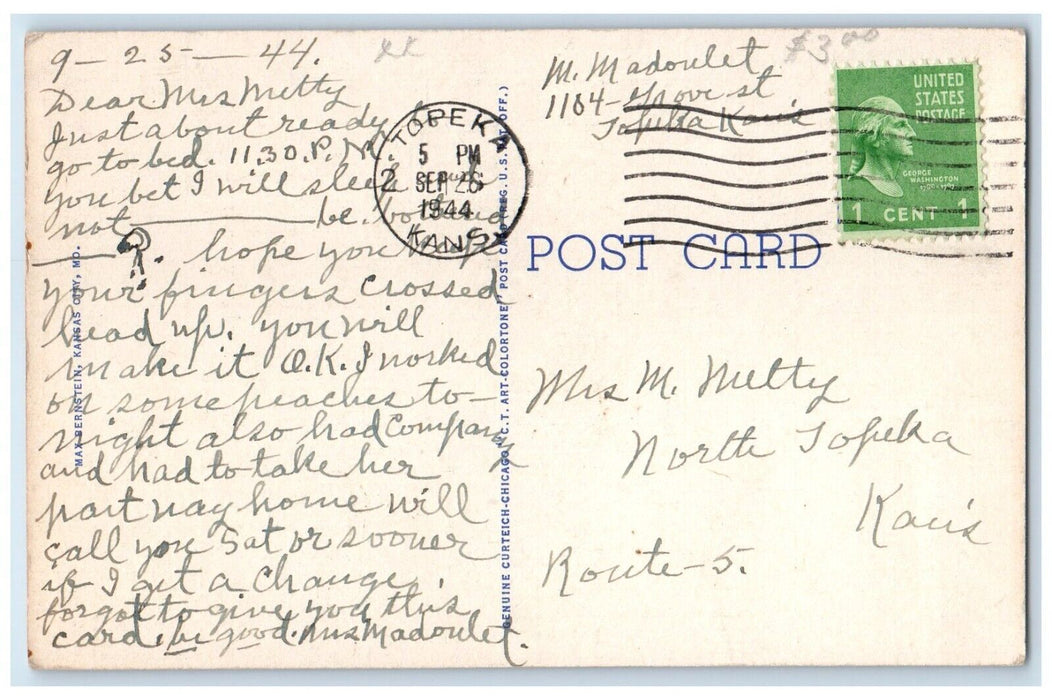 9-25-44.
Dear Mrs Metty
Just about ready to
go to bed. 11.30.P.M.
you bet I will sleep
not be bothered
. hope you kept
your fingers crossed
head up. you will
make it O.K. I worked
on some peaches to-
night also had Company
and had to take her
part way home will
call you Sat or sooner
if I get a change.
forgot to give you this
card. be good. Mrs Madoulet.
MAX BERNSTEIN, KANSAS CITY, MO.
GENUINE CURTEICH-CHICAGO "C.T. ART-COLORTONE" POST CARD (REG. U.S. PAT. OFF.)
TOPEKA
5 PM
SEP 26
1944
KANS.
2
$3.00
M. Madoulet
1104-Grove st
Topeka Kans
UNITED
STATES
POSTAGE
GEORGE
WASHINGTON
1 CENT 1
POST CARD
Mrs M. Metty
North Topeka
Kans
Route-5.